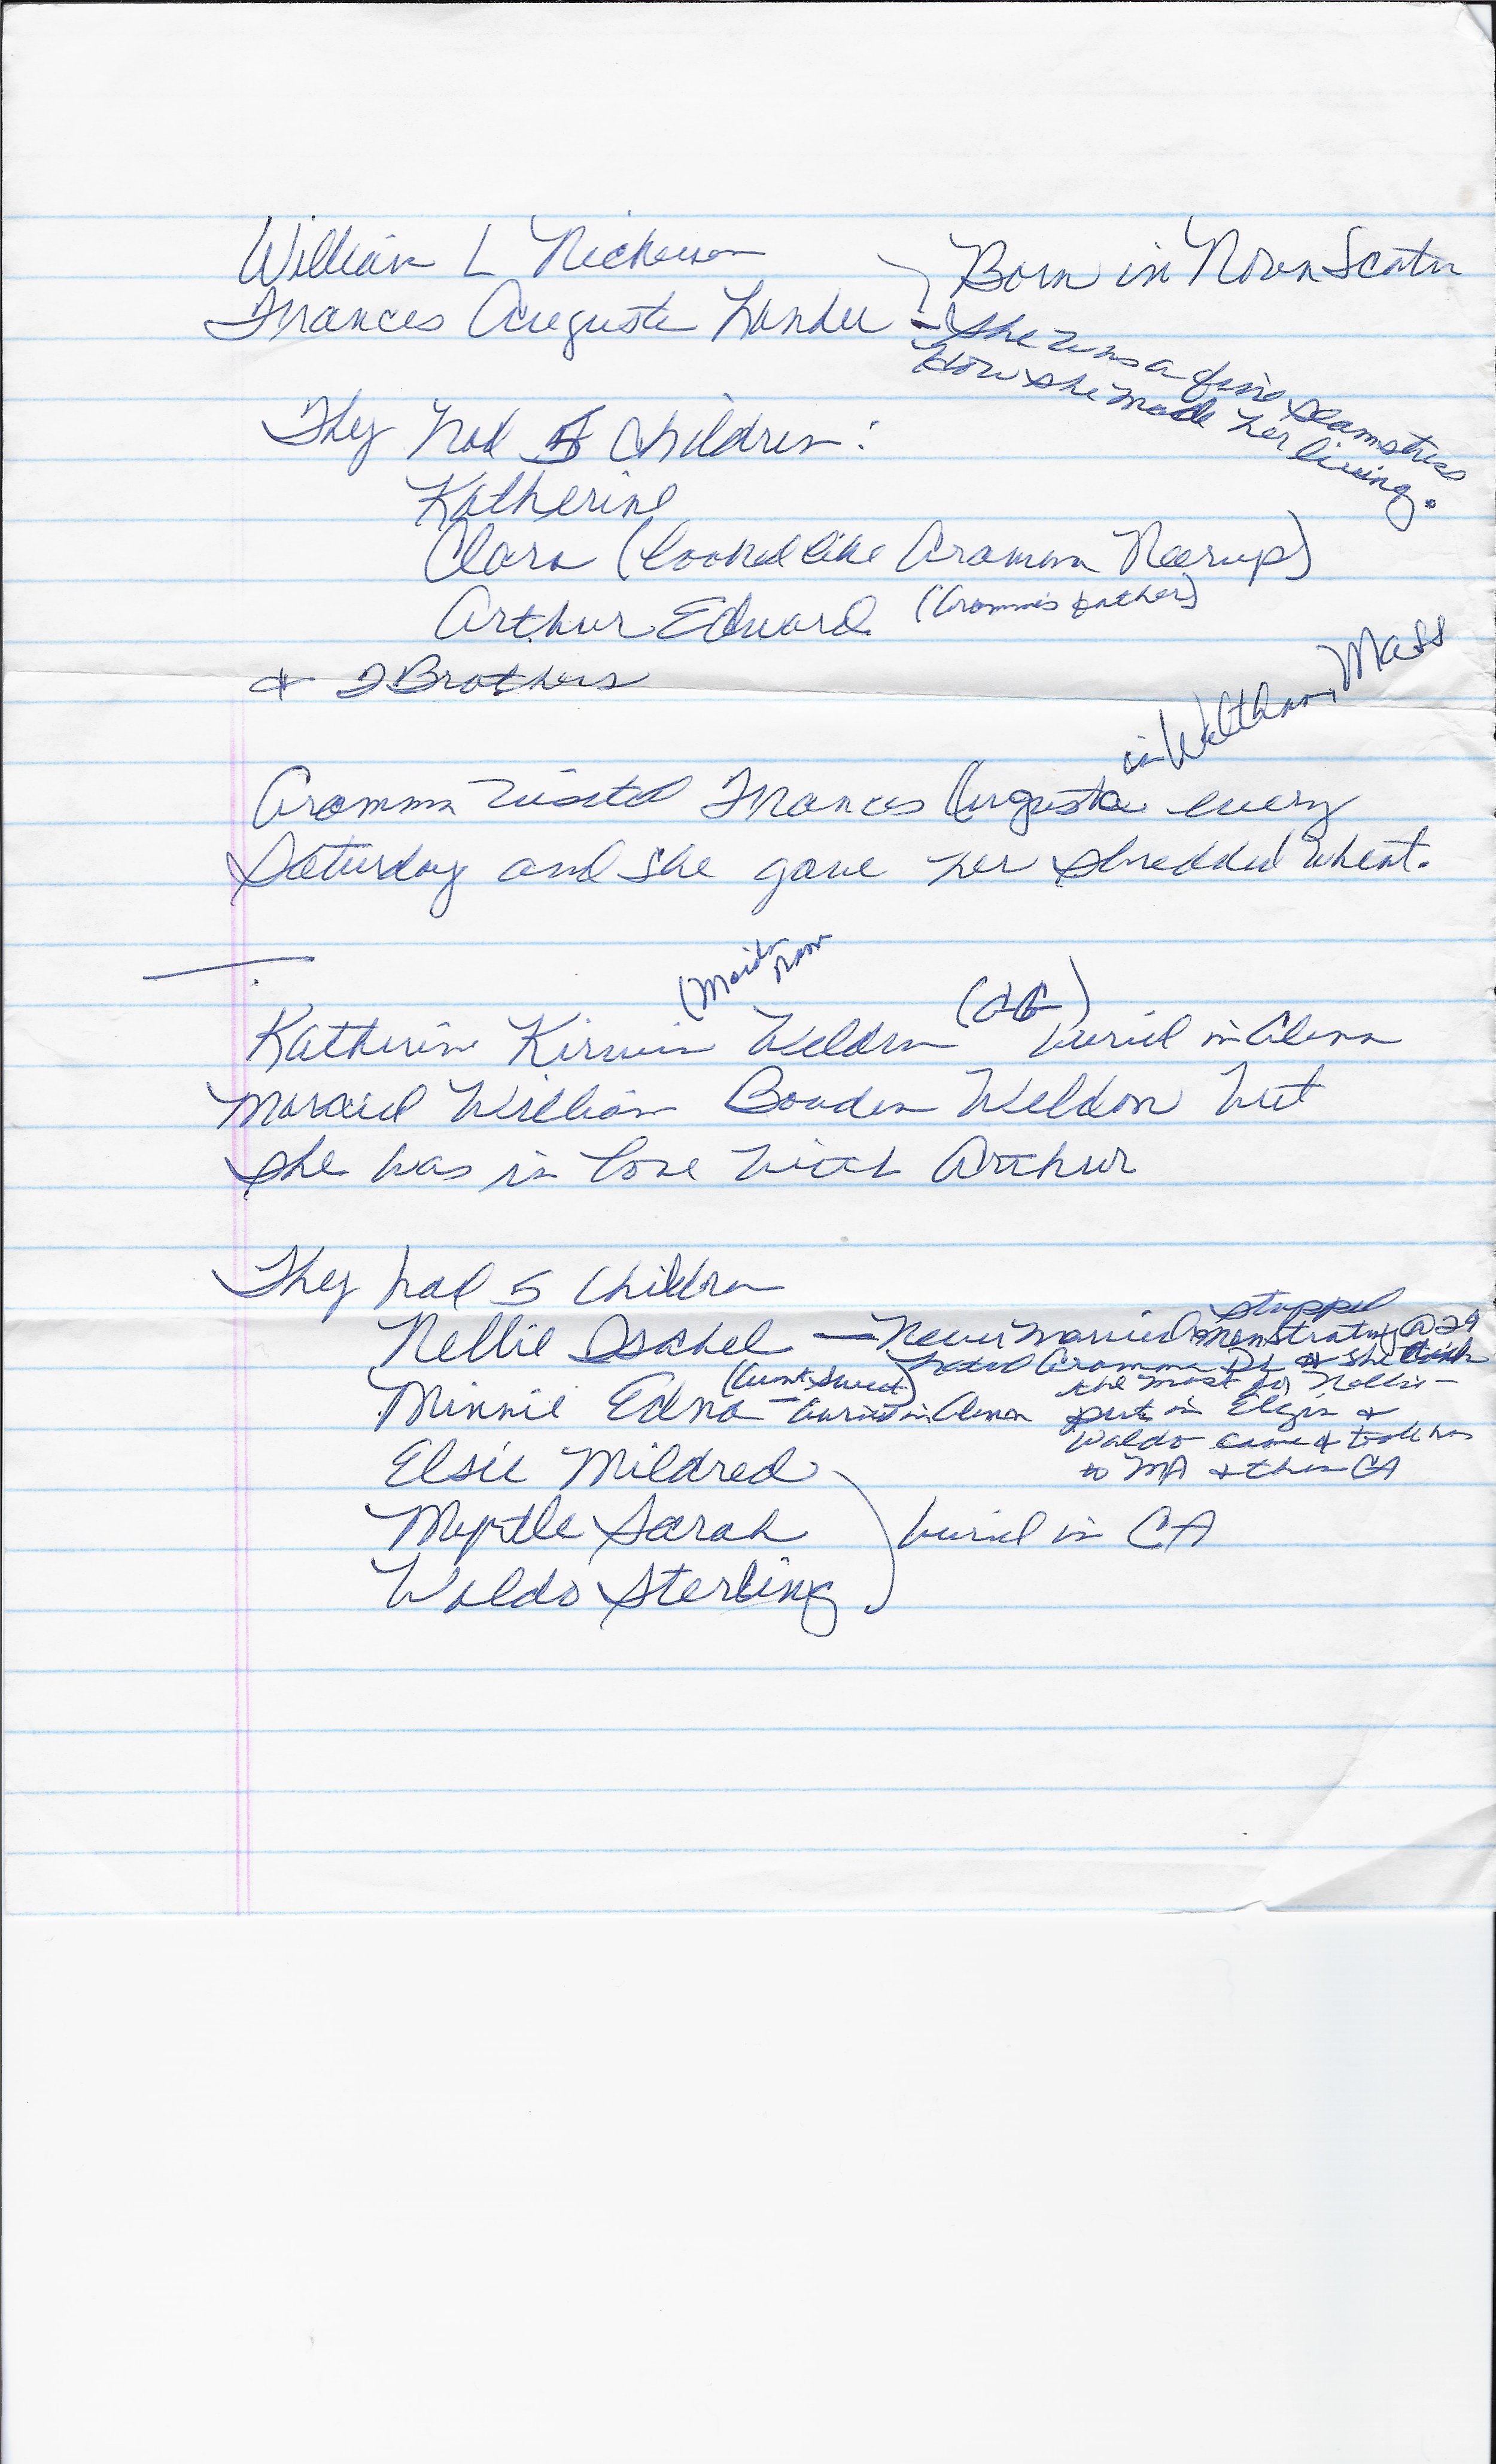 William L Nickerson
Frances Augusta
Born in Nova Scotia
- She was a fine seamstress
How she made her living.
They had 5 Children:
Katherine
Clara (looked like Gramma Neerup)
Arthur Edward (Gramma's father)
& 2 Brothers
in Waltham, Mass
Gramma visited Frances Augusta every
Saturday and she gave her shredded wheat.
(Maiden name
Katherine Kirwin Weldon buried in Alma
Married William Bowden Weldon but
she was in love with Arthur
They had 5 Children
Nellie Isabel — Never married stopped menstrating @ 29
hated Gramma & she
the most for Nellie -
Minnie Edna (Aunt Sweet) - buried in Alma
put in Elgin &
Waldo came & took her
to MA & then CA
Elsie Mildred
Myrtle Sarah
Waldo Sterling
buried in CA